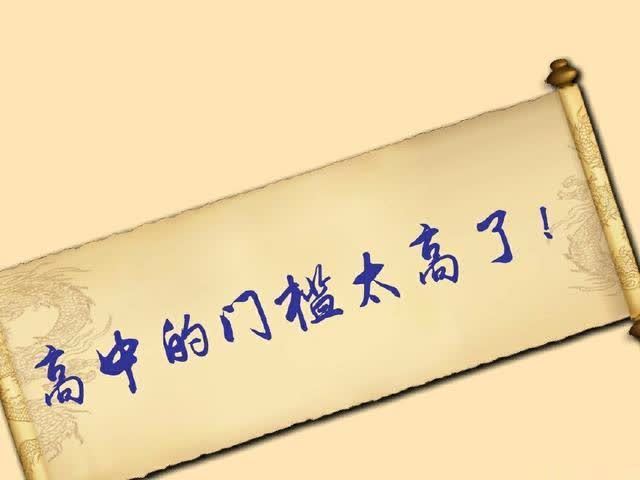 高中的门槛太高了!